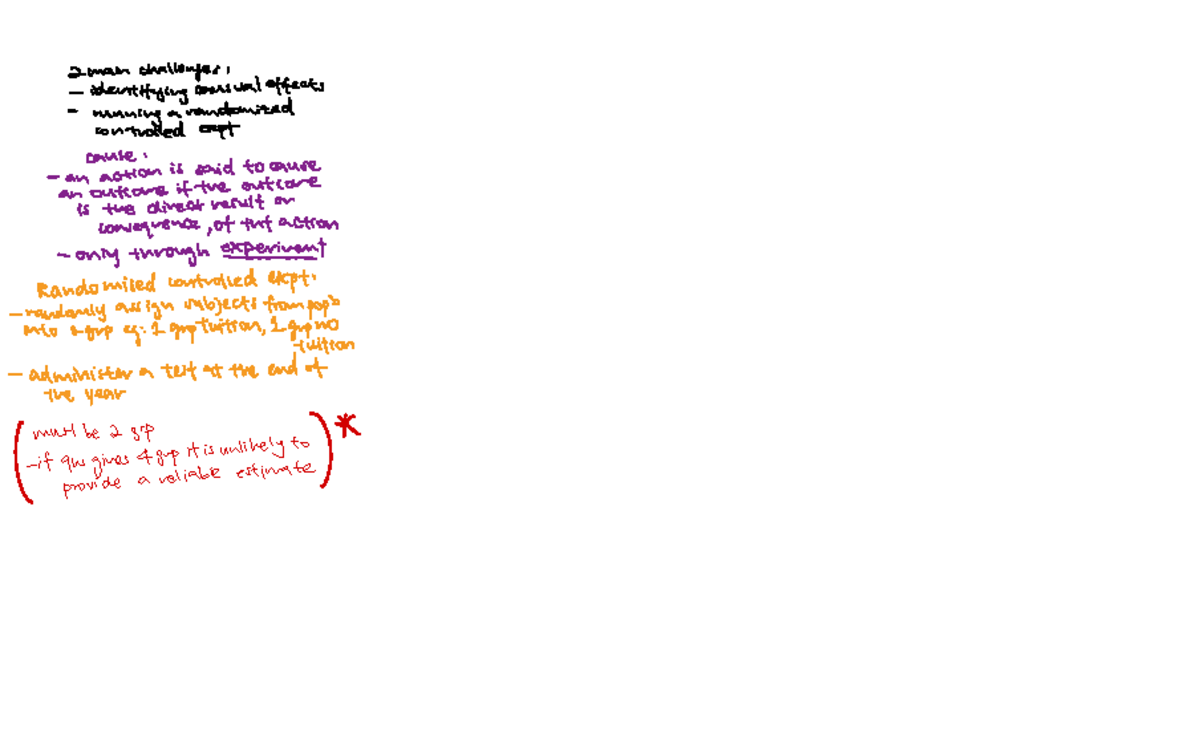 2 main challenges:
- identifying causual effects
- running a randomized
controlled expt
cause:
- an action is said to cause
an outcome if the outcome
is the direct result or
consequence, of that action
- only through experiment
Randomised controlled expt:
- randomly assign subjects from pop'n
into 2 grp eg: 1 grp tuition, 1 grp no
tuition
- administer a test at the end of
the year
(must be 2 grp
- if qns gives 4 grp it is unlikely to
provide a reliable estimate)*